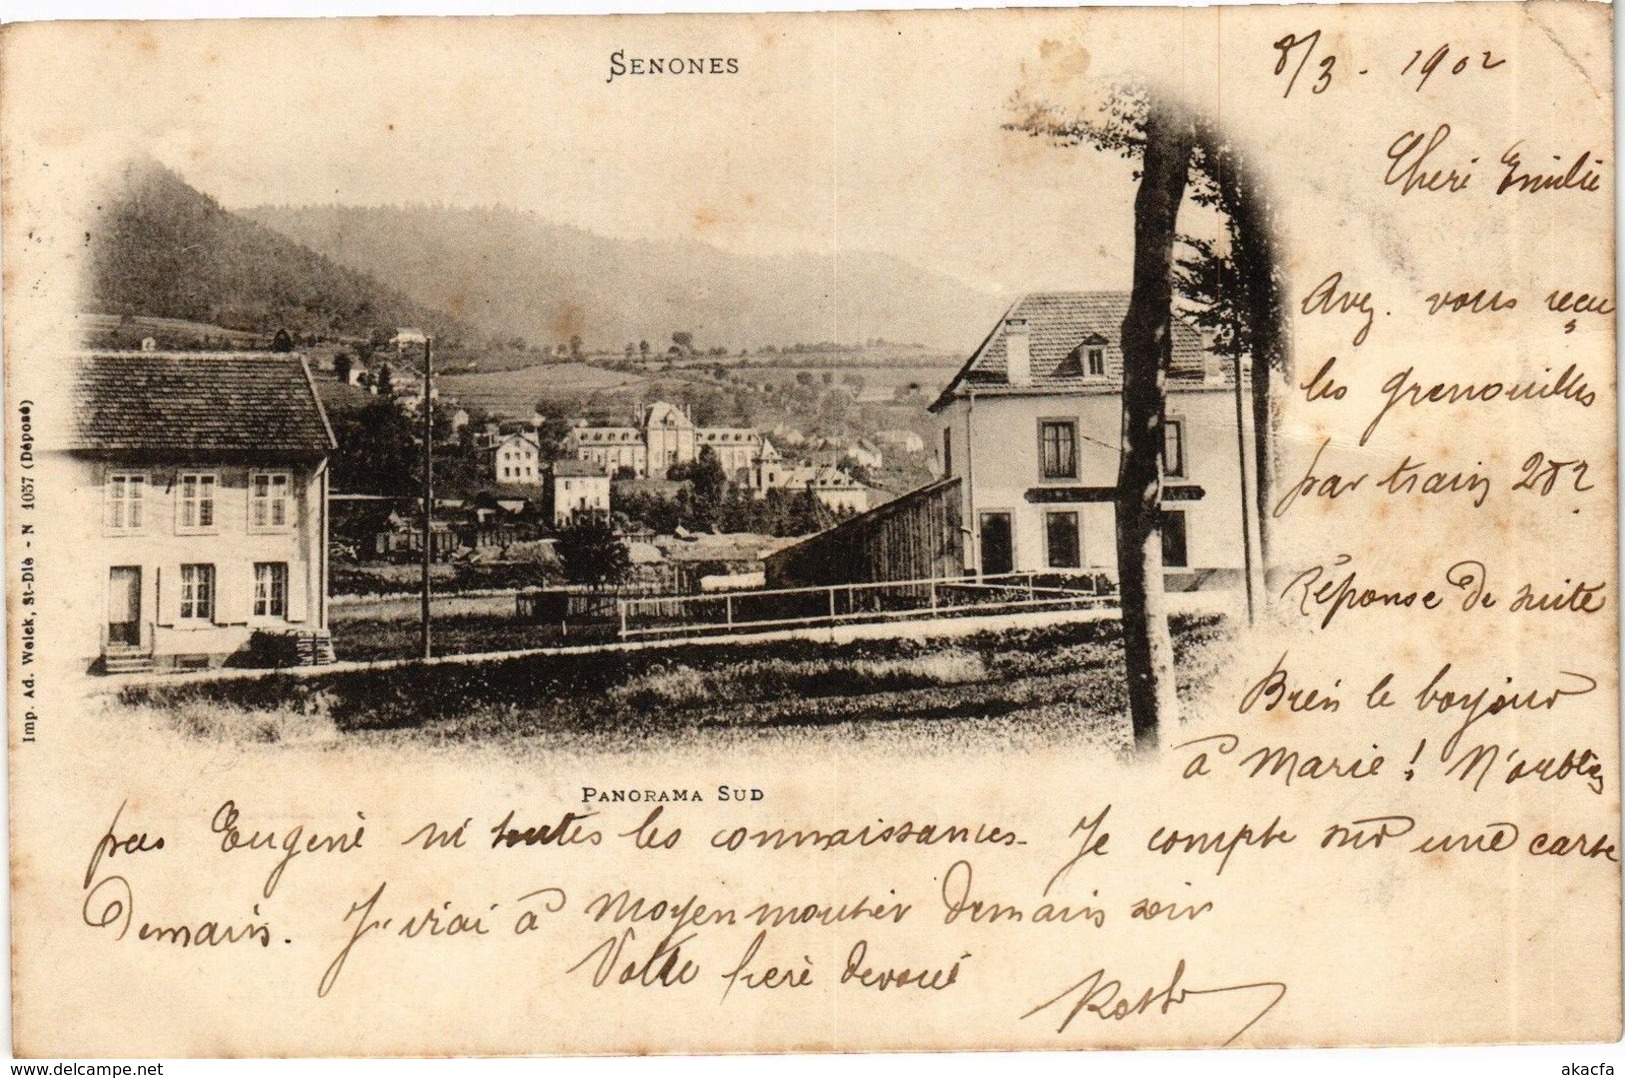 SENONES
8/3 - 1902
Cheri Emilie
Avez-vous reçu
les grenouilles
par train 2
Réponse de suite
Bien le bonjour
à Marie ! N'oubliez
pas Eugenie ni toutes les connaissances. Je compte sur une carte
Demain. J'irai à Moyenmoutier demain soir
Votre frere devoué
PANORAMA SUD
Imp. Ad. Welck, St-Dié - N 1057 (Déposé)
delcampe.net
akacfa